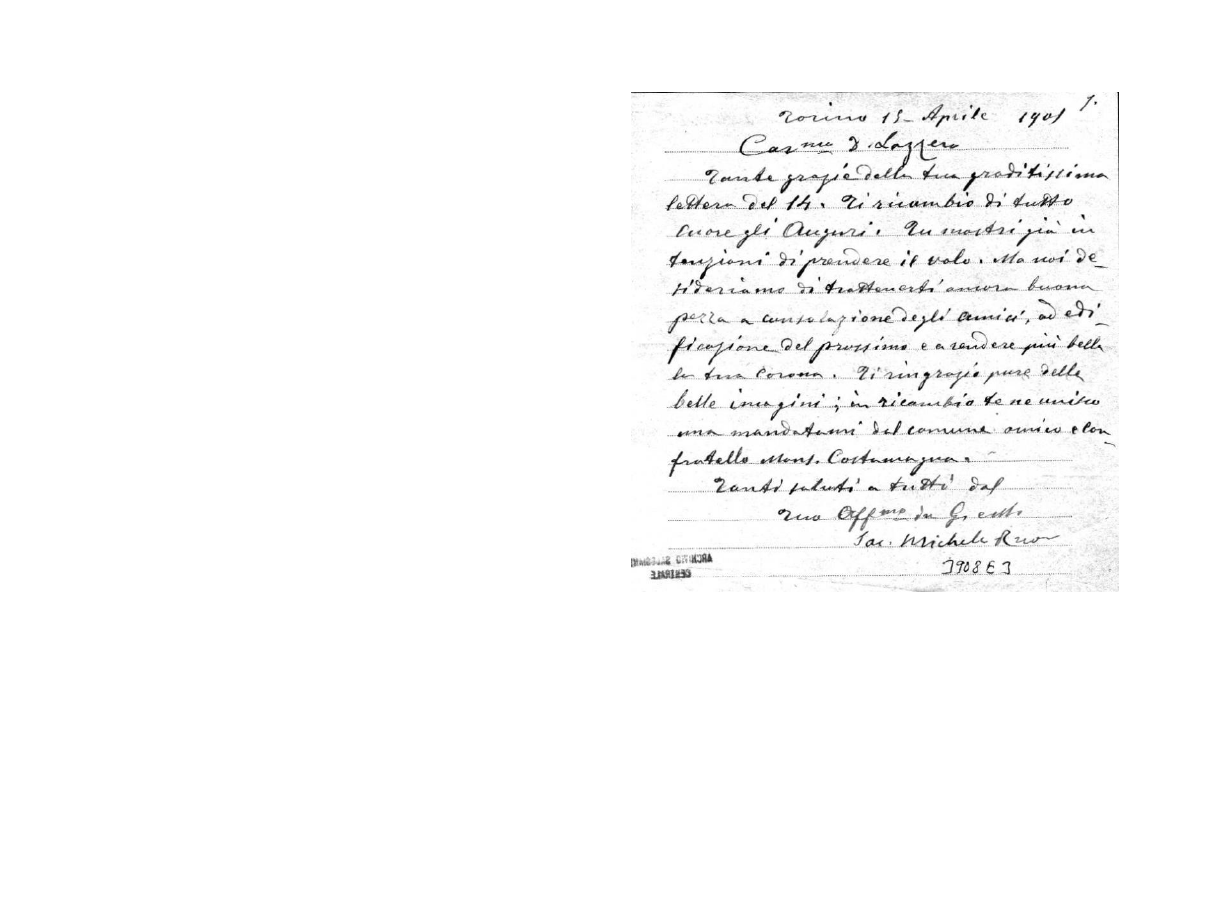 7.
Torino 15 - Aprile 1901
Car.mo D. Lazzero
Tante grazie della tua graditissima
lettera del 14. Ti ricambio di tutto
cuore gli Auguri. Tu mostri già in
tenzioni di prendere il volo. Ma noi de_
sideriamo di trattenerti ancora buona
pezza a consolazione degli amici, ad edi_
ficazione del prossimo e a rendere più bella
la tua corona. Ti ringrazio pure delle
belle imagini; in ricambio te ne unisco
una mandatami dal comune amico e con_
fratello Mons. Costamagna.
Tanti saluti a tutti dal
Tuo Aff.mo in G. e M.
Sac. Michele Rua
ARCHIVIO SALESIANO
CENTRALE
3908 E 3